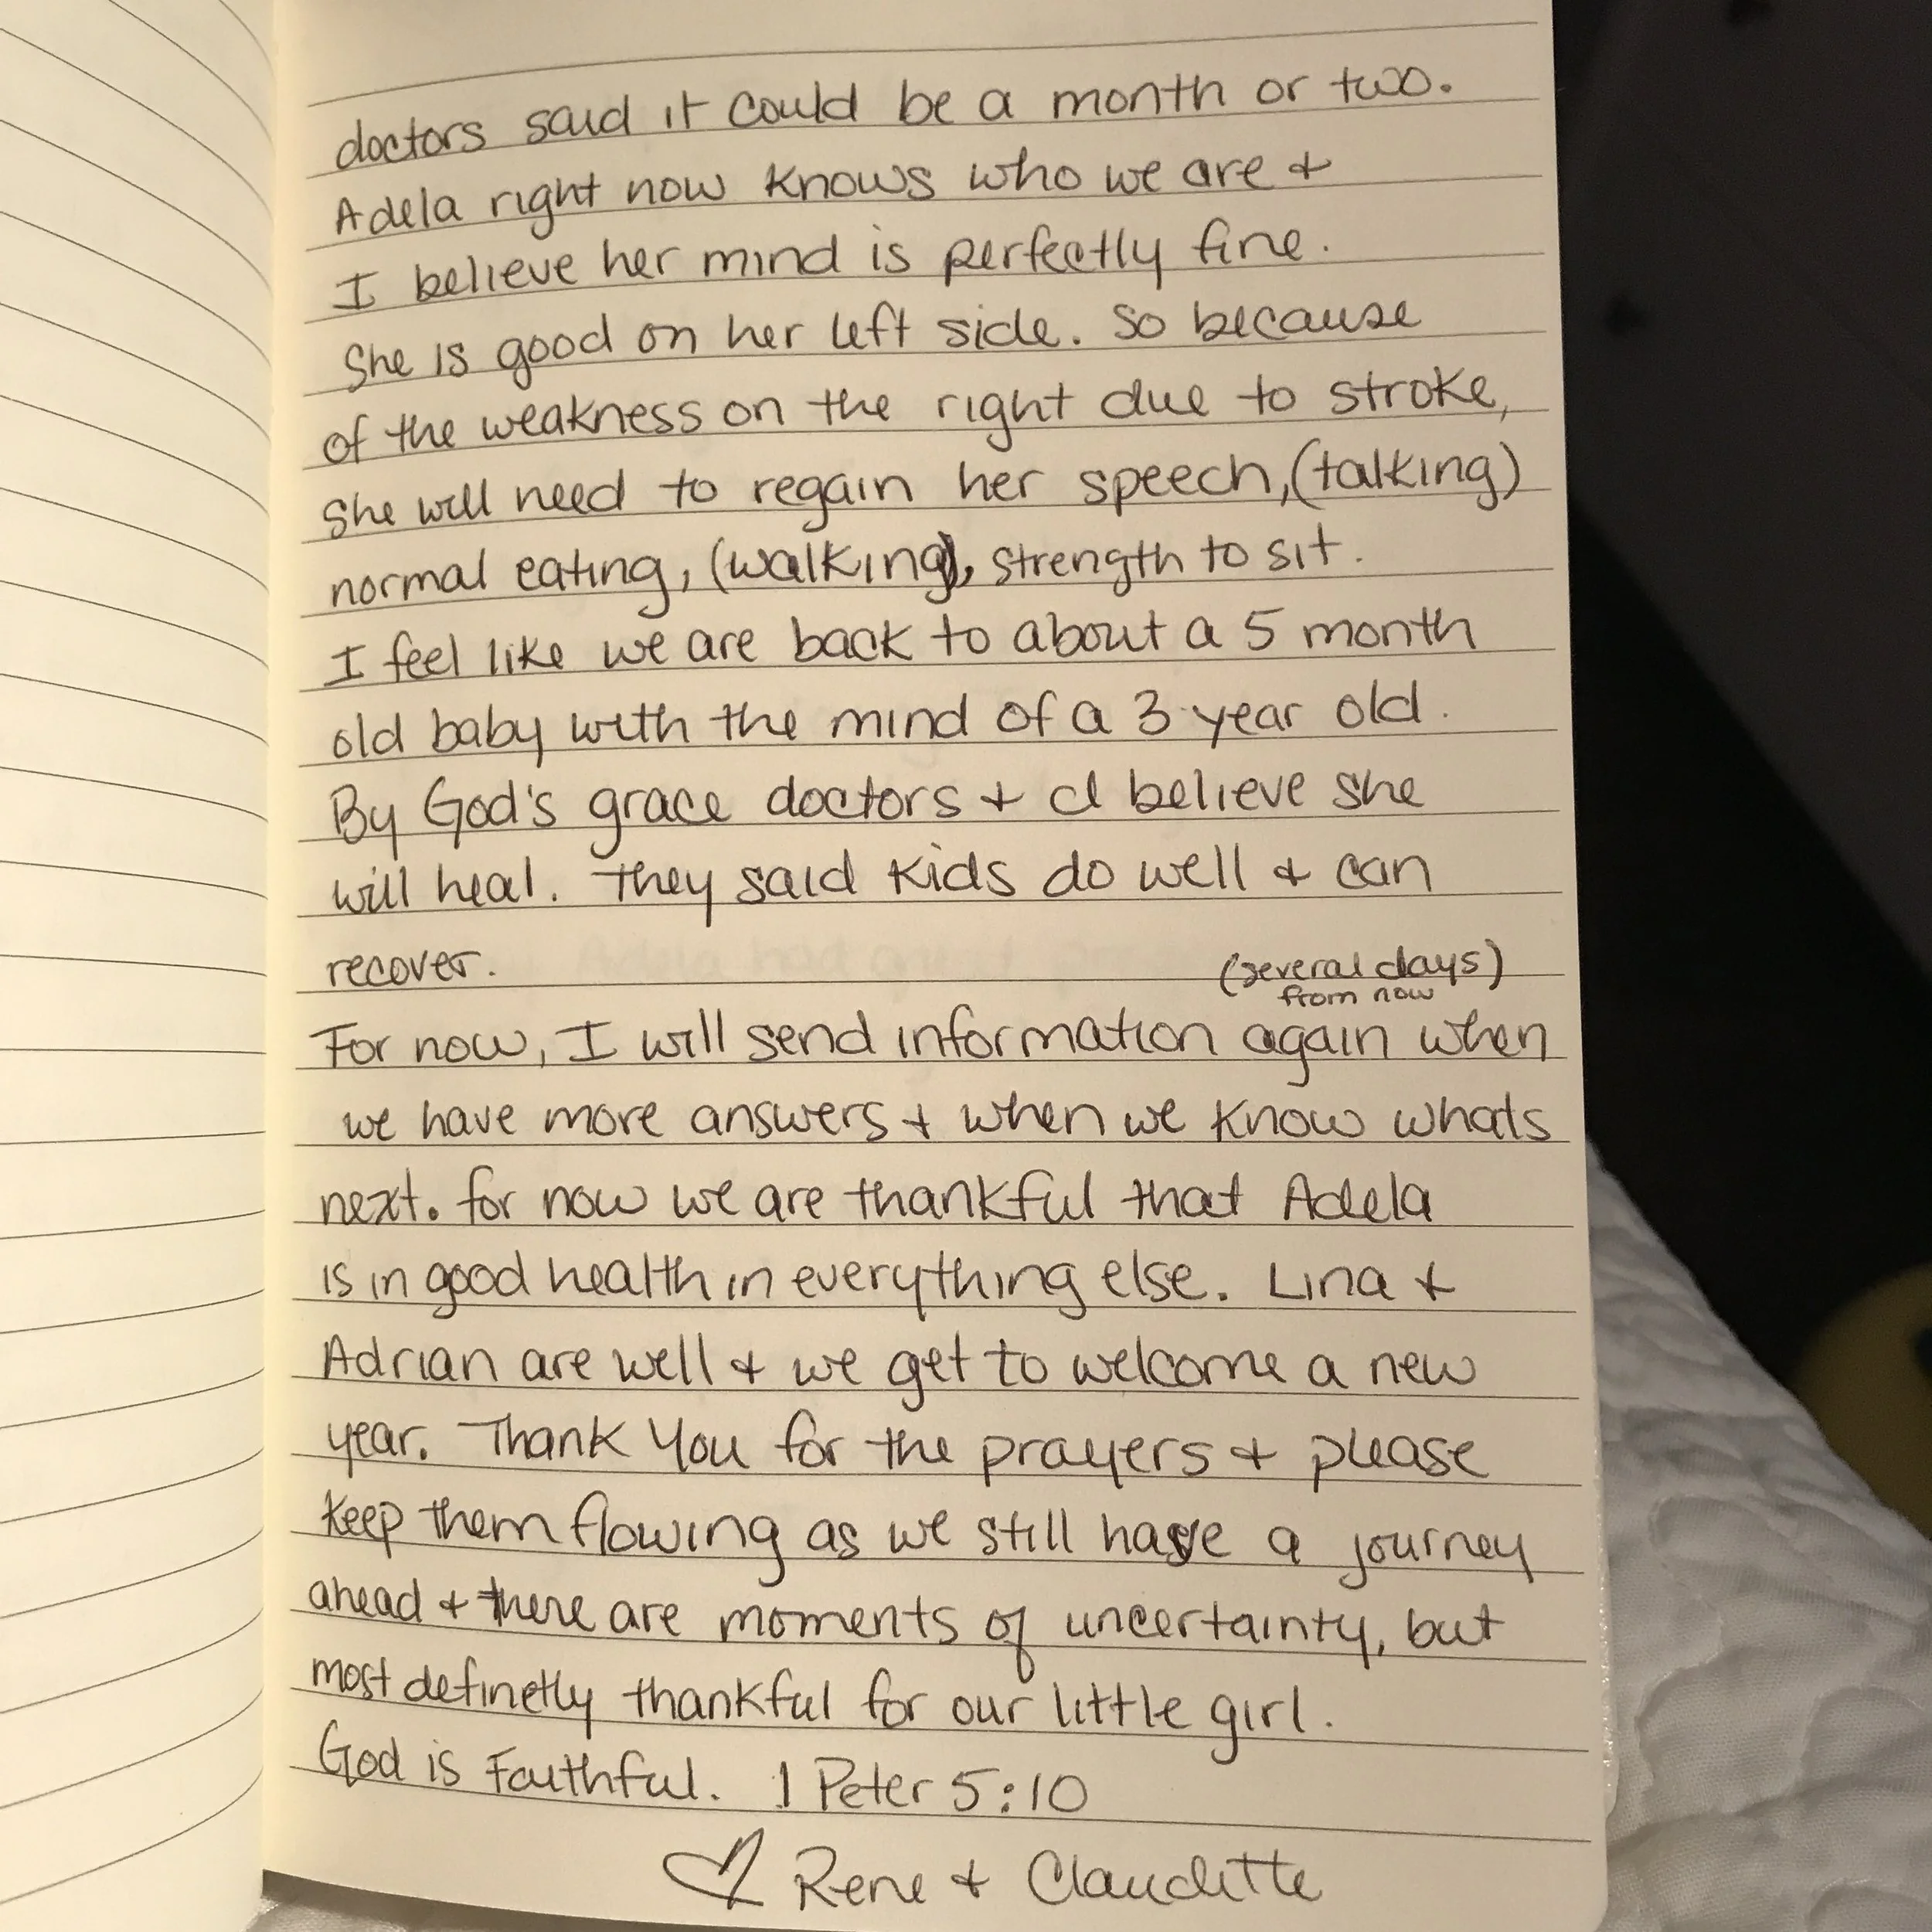 doctors said it could be a month or two.
Adela right now knows who we are +
I believe her mind is perfectly fine.
She is good on her left side. So because
of the weakness on the right due to stroke,
she will need to regain her speech, (talking)
normal eating, (walking), strength to sit.
I feel like we are back to about a 5 month
old baby with the mind of a 3 year old.
By God's grace doctors + I believe she
will heal. They said kids do well + can
recover.
(several days)
from now
For now, I will send information again when
we have more answers + when we know whats
next. for now we are thankful that Adela
is in good health in everything else. Lina +
Adrian are well + we get to welcome a new
year. Thank You for the prayers + please
keep them flowing as we still have a journey
ahead + there are moments of uncertainty, but
most definetly thankful for our little girl.
God is Faithful. 1 Peter 5:10
♡ Rene + Claudette